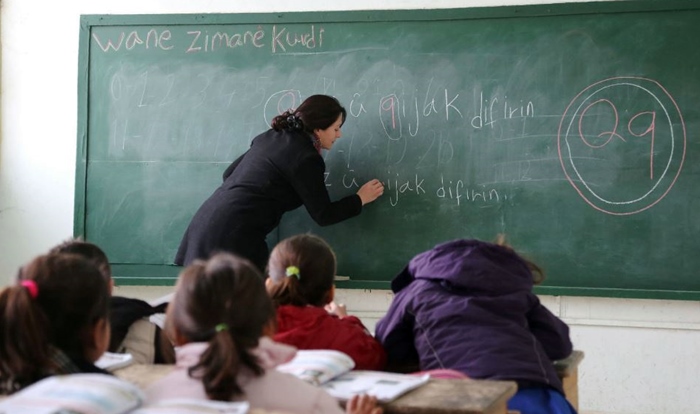 wane zimanê Kurdî
Q û qijak difirin
Qq
z û qijak difirin.